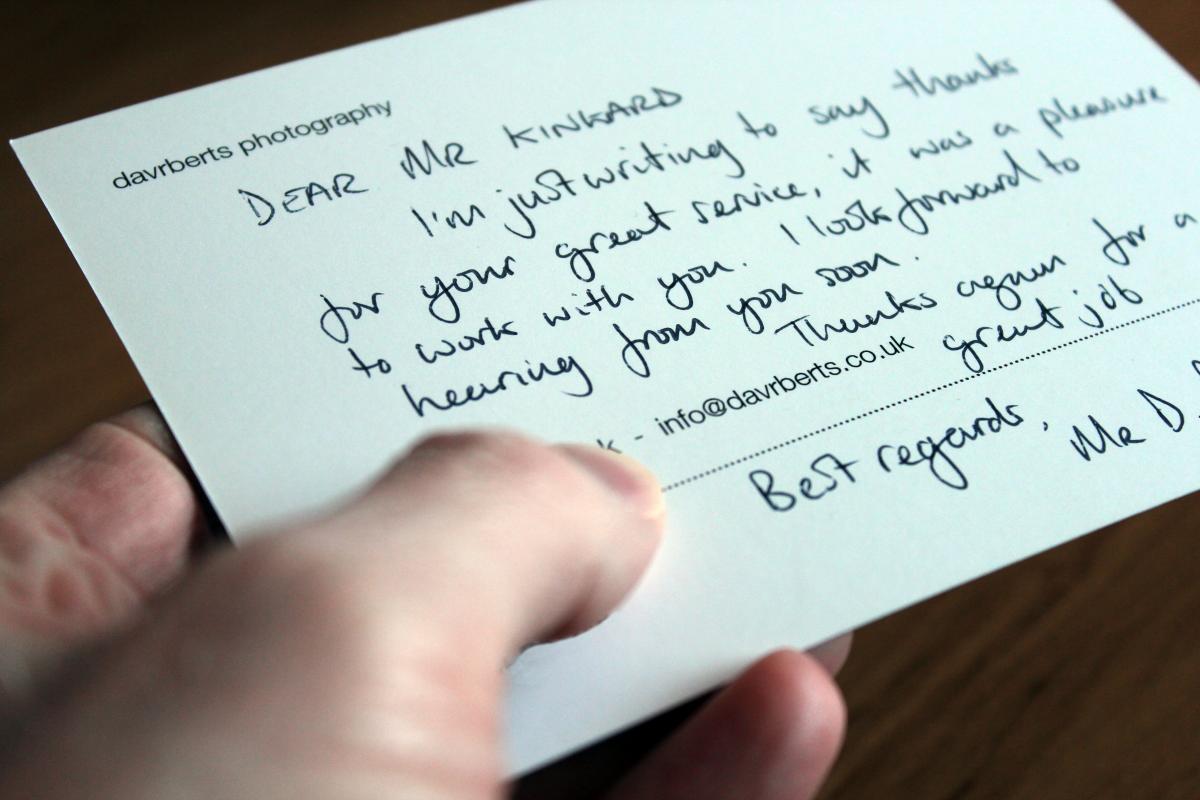 davrberts photography
DEAR MR KINKARD
I'm just writing to say thanks
for your great service, it was a pleasure
to work with you. I look forward to
hearing from you soon.
Thanks again for a
great job
k - info@davrberts.co.uk
Best regards,
MR D